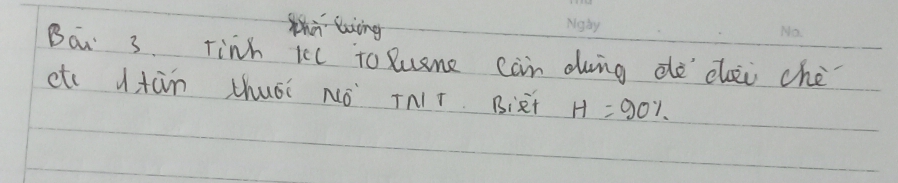 Ngày No.
khối lượng
Bài 3. Tính toluene cần dùng để điều chế
đc 1 tấn thuốc nổ TNT. Biết H = 90%.